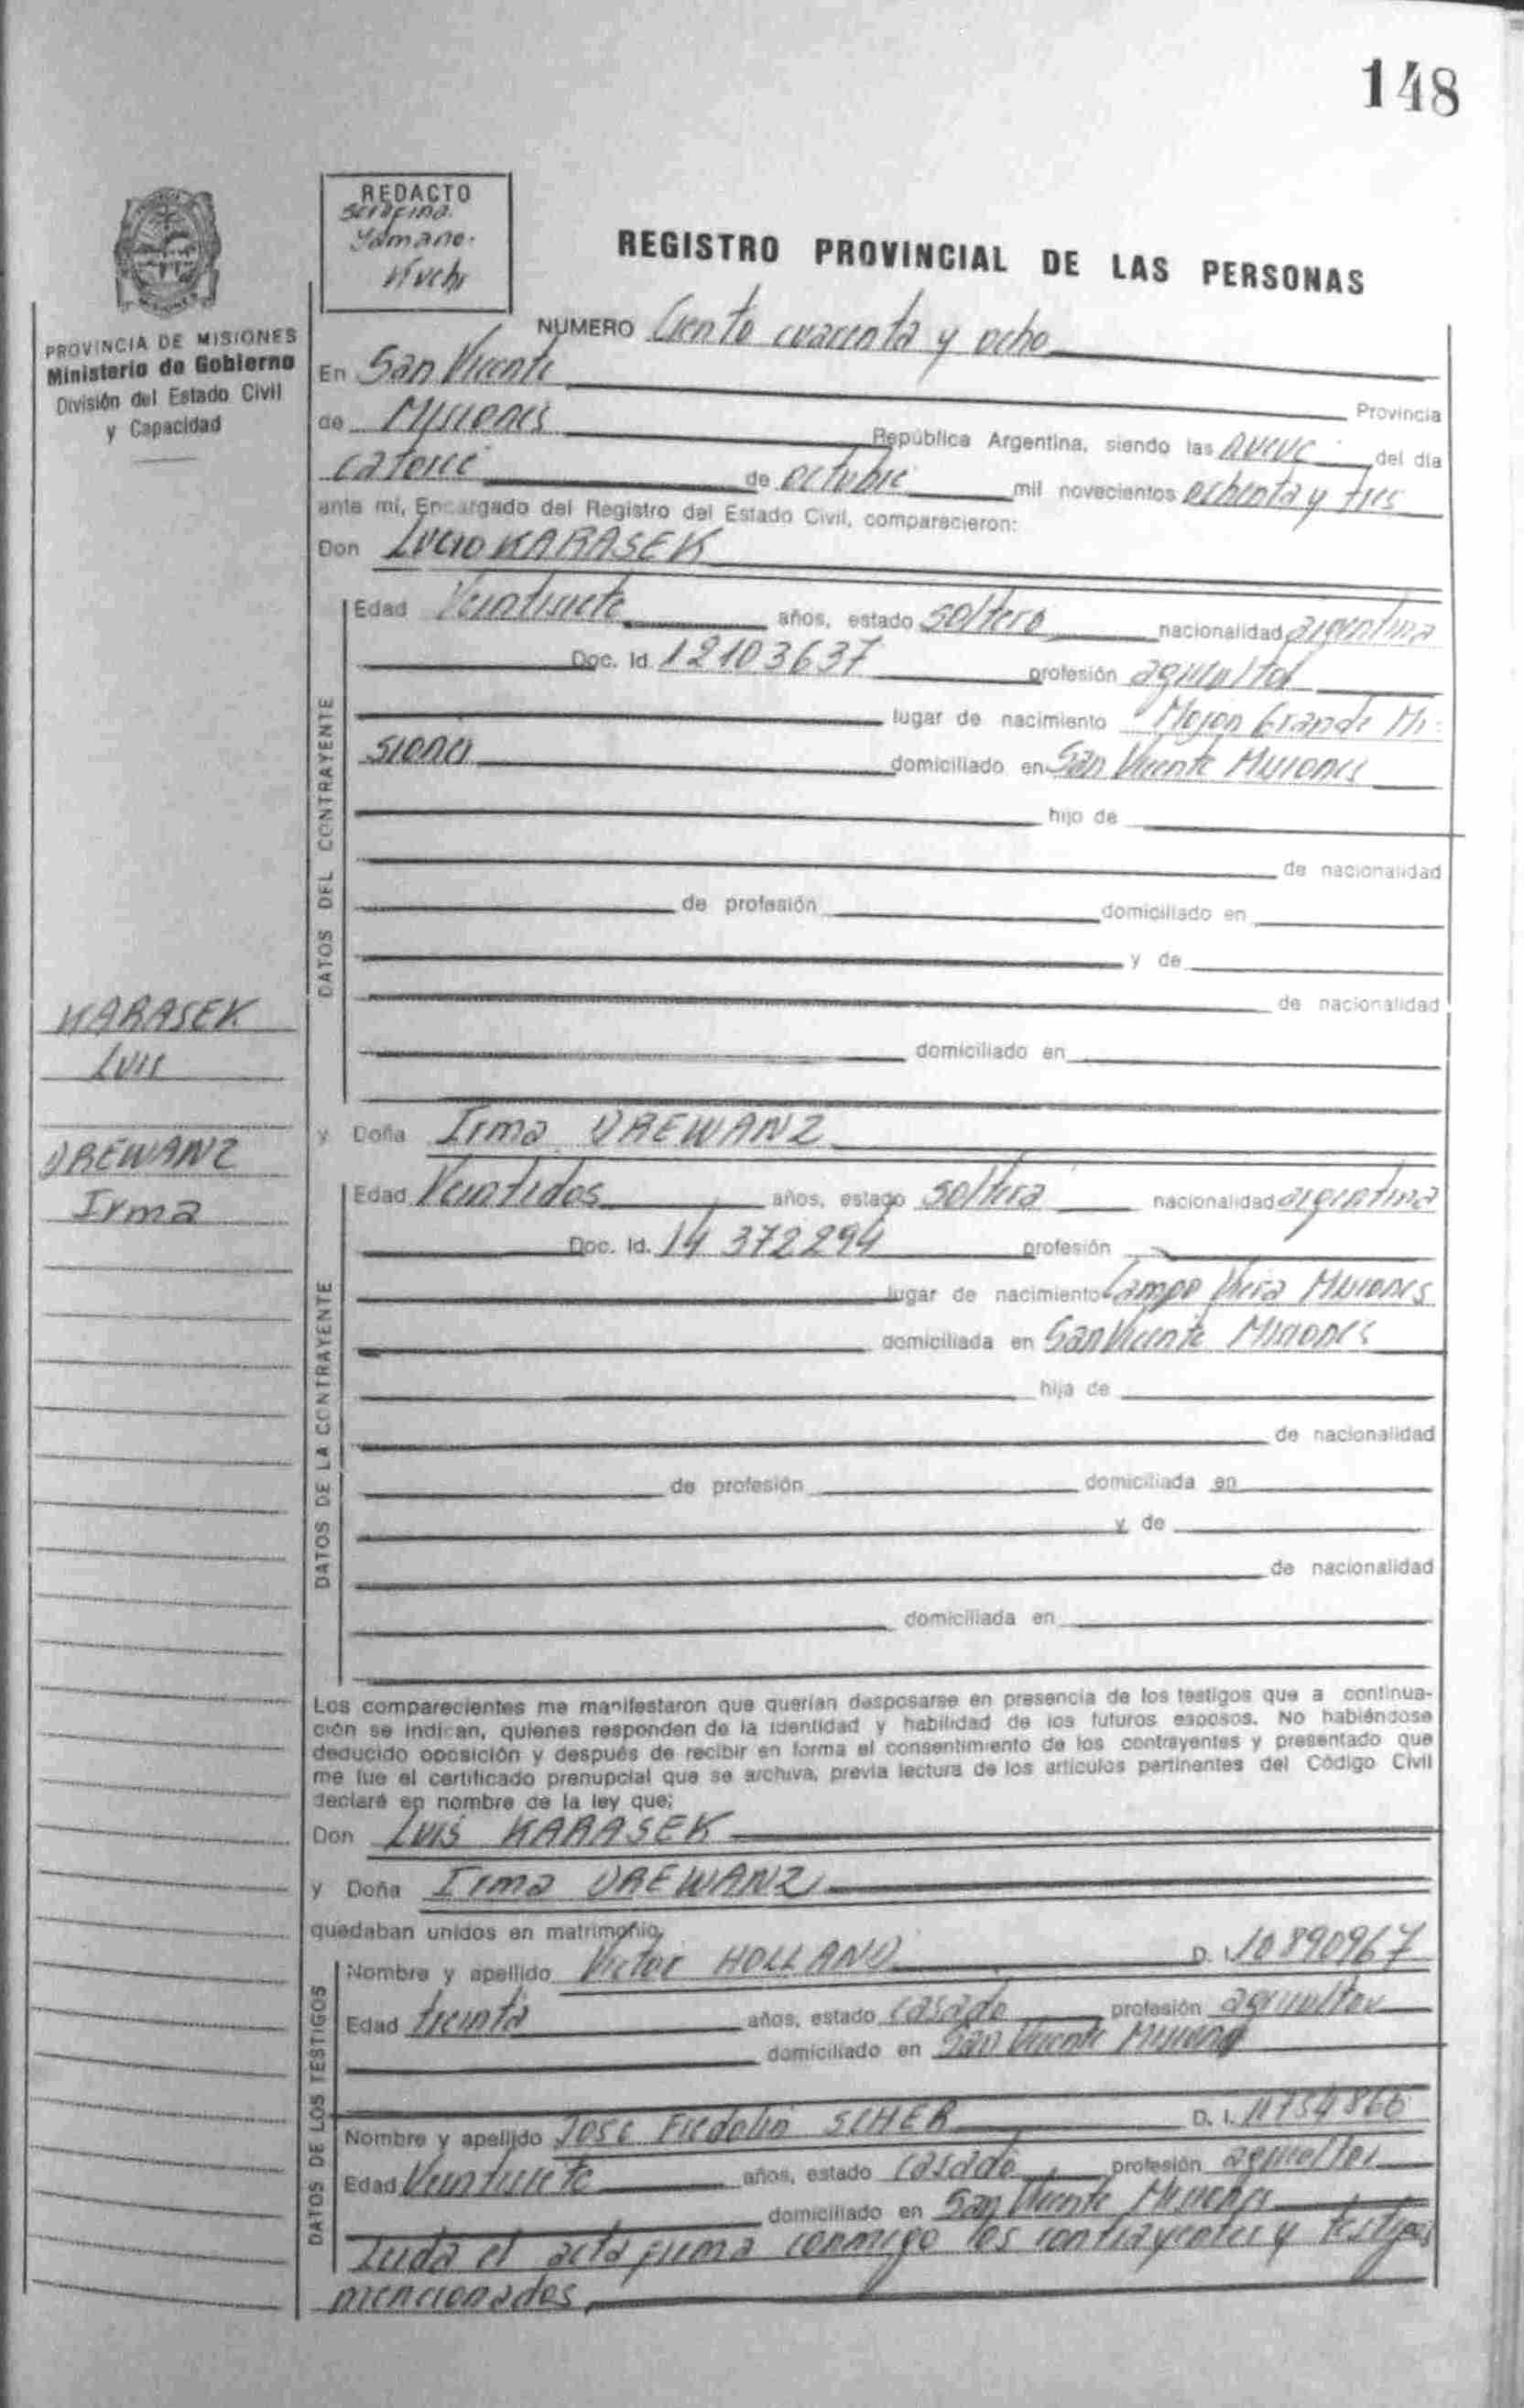 148
REDACTO
Serafina
Yamano.
REGISTRO PROVINCIAL DE LAS PERSONAS
PROVINCIA DE MISIONES
Ministerio de Gobierno
División del Estado Civil
y Capacidad
NUMERO Ciento cuarenta y ocho
En San Vicente
Provincia
de Misiones República Argentina, siendo las nueve del día
catorce de octubre mil novecientos ochenta y tres
ante mí, Encargado del Registro del Estado Civil, comparecieron:
Don Lucio KARASEK
DATOS DEL CONTRAYENTE
Edad Veintisiete años, estado soltero nacionalidad argentina
Doc. Id. 12103637 profesión agricultor
lugar de nacimiento Mojon Grande Mi-
siones domiciliado en San Vicente Misiones
hijo de
de nacionalidad
de profesión domiciliado en
y de
de nacionalidad
domiciliado en
KARASEK
Luis
DREWANZ
Irma
y Doña Irma DREWANZ
DATOS DE LA CONTRAYENTE
Edad Veintidos años, estado soltera nacionalidad argentina
Doc. Id. 14 372294 profesión
lugar de nacimiento Campo Viera Misiones
domiciliada en San Vicente Misiones
hija de
de nacionalidad
de profesión domiciliada en
y de
de nacionalidad
domiciliada en
Los comparecientes me manifestaron que querían desposarse en presencia de los testigos que a continua-
ción se indican, quienes responden de la identidad y habilidad de los futuros esposos. No habiéndose
deducido oposición y después de recibir en forma el consentimiento de los contrayentes y presentado que
me fue el certificado prenupcial que se archiva, previa lectura de los artículos pertinentes del Código Civil
declaré en nombre de la ley que:
Don Luis KARASEK
y Doña Irma DREWANZ
quedaban unidos en matrimonio,
DATOS DE LOS TESTIGOS
Nombre y apellido Victor HOLLAND D. I. 10890967
Edad treinta años, estado casado profesión agricultor
domiciliado en San Vicente Misiones
Nombre y apellido Jose Fredolin SCHER D. I. 11754866
Edad Veintisiete años, estado casado profesión agricultor
domiciliado en San Vicente Misiones
Leida el acta firma conmigo los contrayentes y testigos
mencionados